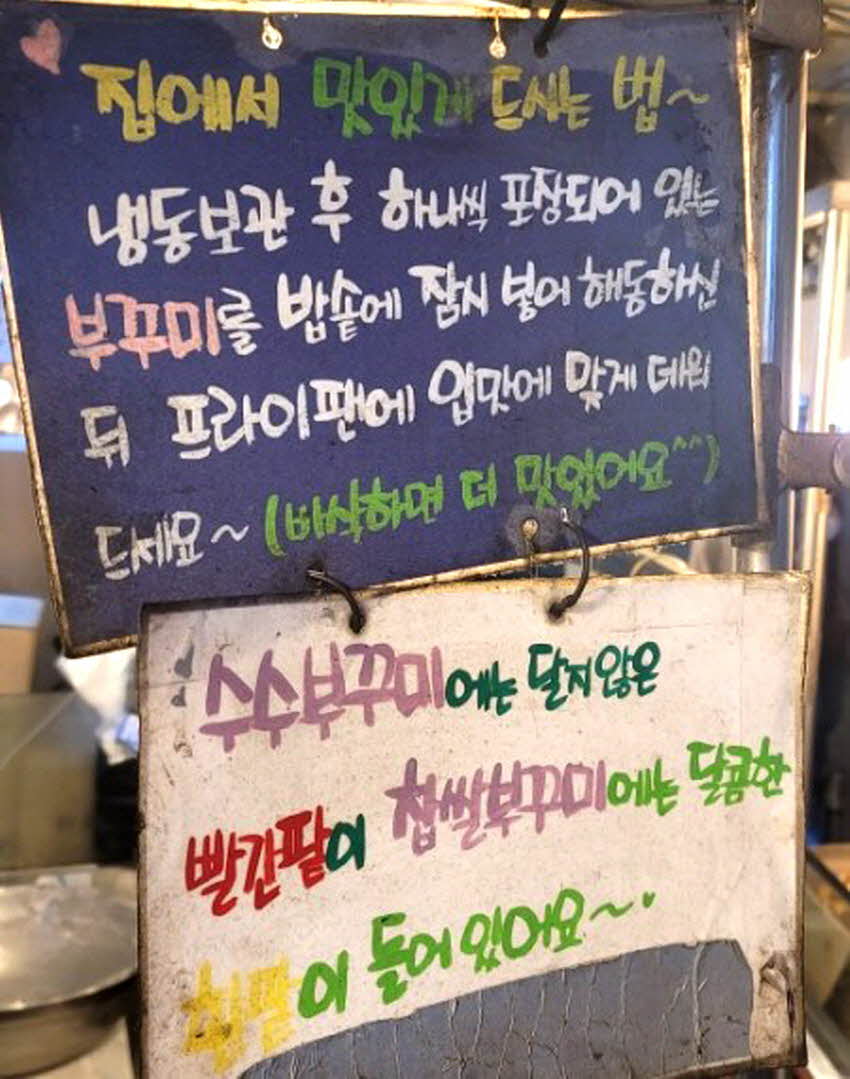 집에서 맛있게 드시는 법~
냉동보관 후 하나씩 포장되어 있는
부꾸미를 밥솥에 잠시 넣어 해동하신
뒤 프라이팬에 입맛에 맞게 데워
드세요~ (바삭하면 더 맛있어요^^)
수수부꾸미에는 달지않은
빨간팥이 찹쌀부꾸미에는 달콤한
흰팥이 들어있어요~